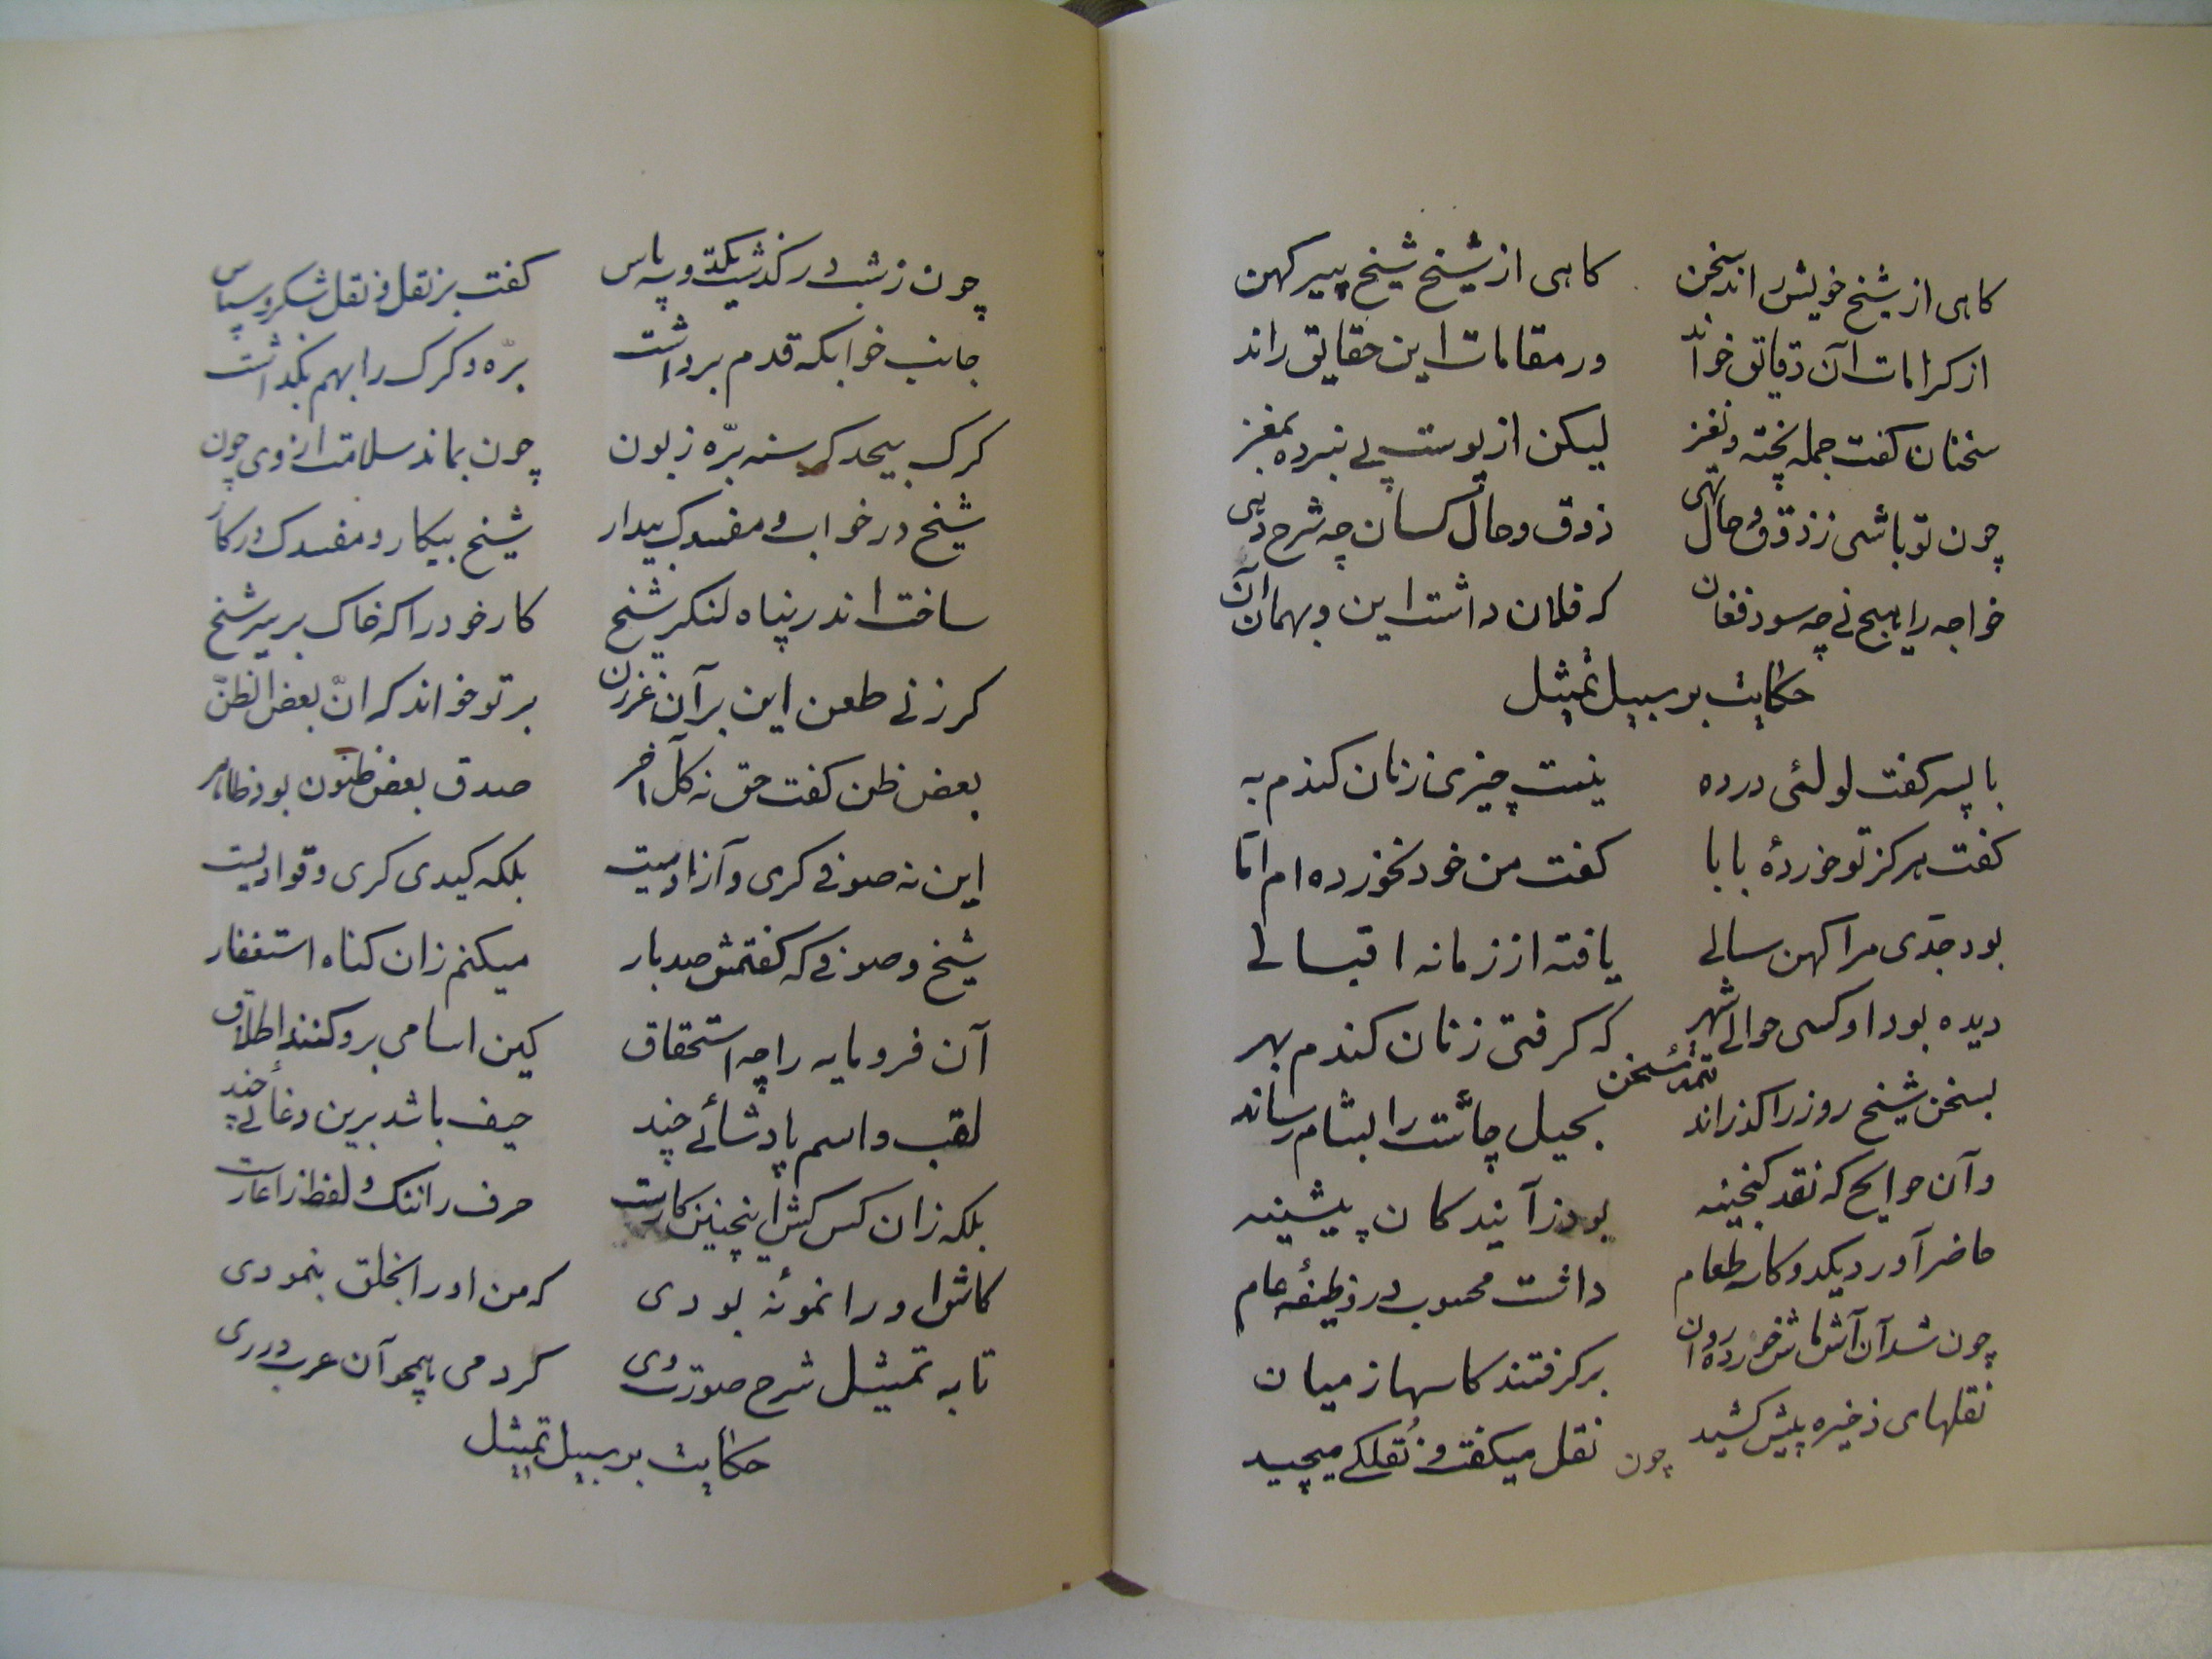 کاهی از شیخ خویش راند سخن کاهی از شیخ شیخ پیر کهن
از کرامات آن دقایق خواند ور مقامات این حقایق راند
سخنان کفت جمله پخته و نغز لیکن از پوست پی نبرده بمغز
چون تو باشی ز ذوق و حال تهی ذوق و حال کسان چه شرح دهی
خواجه را هیچ نی چه سود فغان که فلان داشت این و بهمان آن
حکایت بر سبیل تمثیل
با پسر کفت لولئی در ده نیست چیزی ز نان کندم به
کفت هرکز تو خوردهٔ بابا کفت من خود نخورده ام اما
بود جدی مرا کهن سالی یافته از زمانه اقبالی
دیده بود او کسی حوالی شهر که کرفتی ز نان کندم بهر
تتمهٔ سخن
بسخن شیخ روز را کذراند بحیل چاشت را بشام رساند
و آن حوایج که نقد کنجینه بود ز آیندکان پیشینه
حاضر آورد یکدو کاسه طعام داشت محسوب در وظیفهٔ عام
چون شد آن آش ماش خورده روان برکرفتند کاسها ز میان
نقلهای ذخیره پیش کشید نقل میکفت و نُقلکی میچید
چون
چون ز شب درکذشت یکدو پاس کفت بر نقل و نقل شکر و سپاس
جانب خوابکه قدم برداشت برّه و کرک را بهم بکذاشت
کرک بیحد کرسنه برّه زبون چون بماند سلامت از وی چون
شیخ در خواب و مفسدک بیدار شیخ بیکار و مفسدک در کار
ساخت اندر پناه لنکر شیخ کار خود را که خاک بر سر شیخ
کر زنی طعن این بر آن غرزن بر تو خواند که انّ بعض الظنّ
بعض ظن کفت حق نه کل آخر صدق بعض ظنون بود ظاهر
این نه صوفی کری و آزادیست بلکه کیدی کری و قوادیست
شیخ و صوفی که کفتمش صد بار میکنم زان کناه استغفار
آن فرومایه را چه استحقاق کین اسامی برو کنند اطلاق
لقب و اسم پادشائی چند حیف باشد برین دغائی چند
بلکه زان کس کش اینچنین کارست حرف را ننک و لفظ را عارست
کاش او را نمونهٔ بودی که من او را بخلق بنمودی
تا به تمثیل شرح صورت وی کردمی همچو آن عرب در ری
حکایت بر سبیل تمثیل